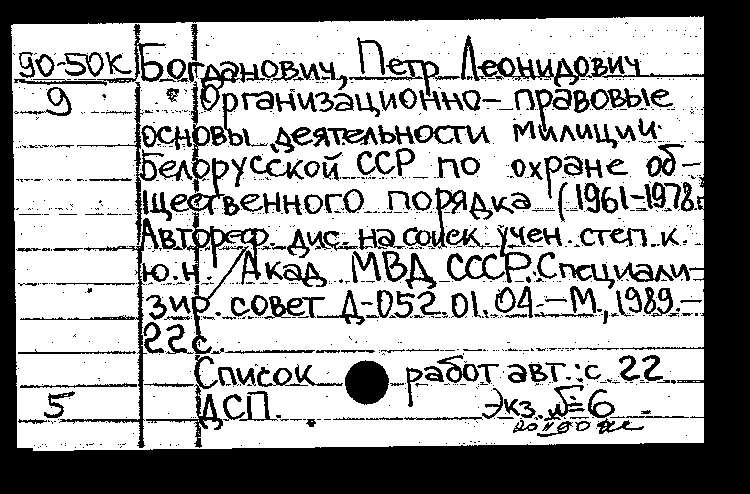 90-50К Богданович, Петр Леонидович
9 Организационно-правовые
основы деятельности милиции
Белорусской ССР по охране об-
щественного порядка (1961-1978г
Автореф. дис. на соиск. учен. степ. к.
ю.н. Акад МВД СССР. Специали-
зир. совет Д-052.01.04.-М, 1989.-
22 с.
Список работ авт.: с 22.
5 ДСП. Экз. №6